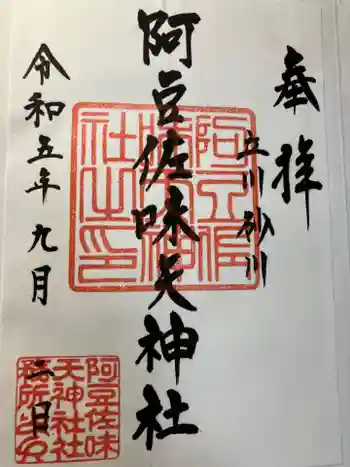 奉拝
立川砂川
阿豆佐味天神社
令和五年九月
二日
阿豆佐味
天神社社
務所之印